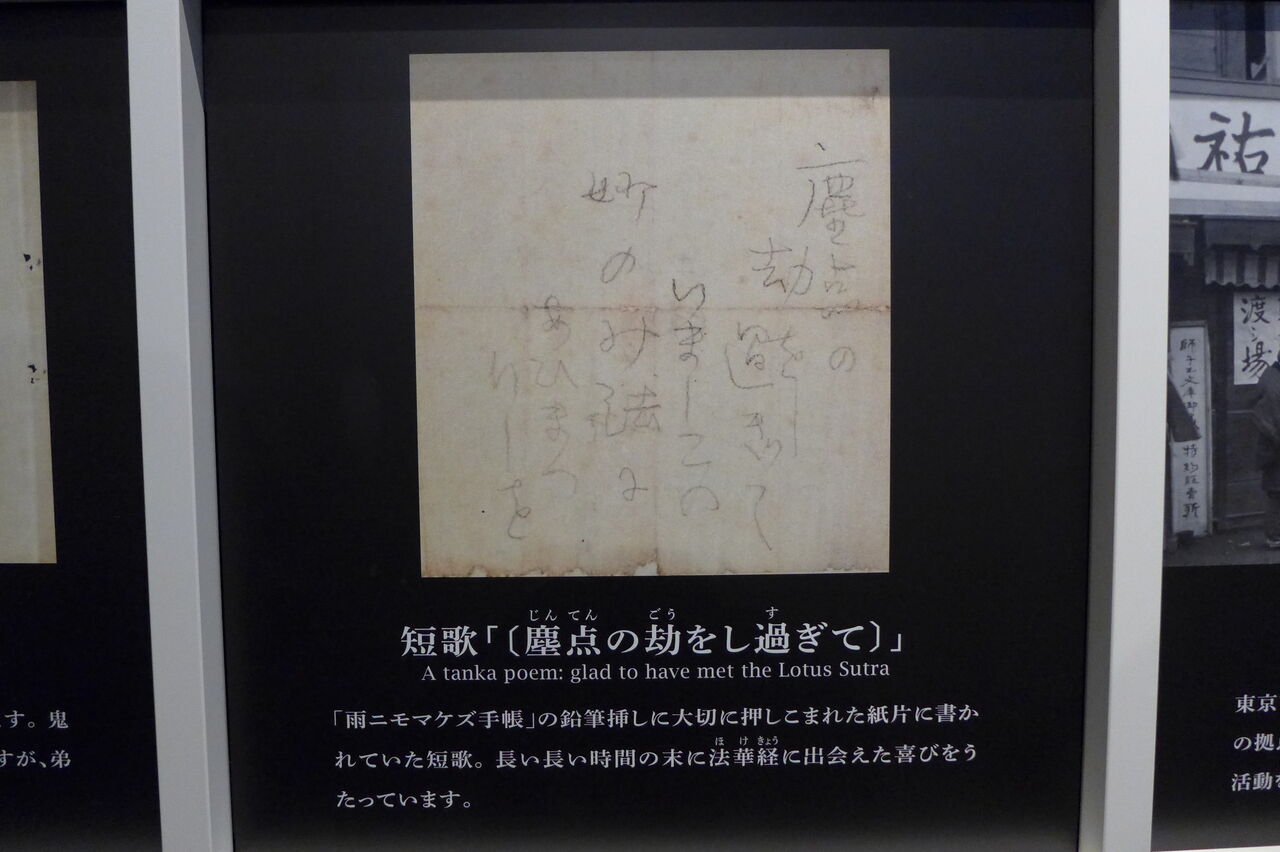 塵点の
劫をし
過ぎて
いましこの
妙のみ法に
あひまつ
りしを
じんてん ごう す
短歌「〔塵点の劫をし過ぎて〕」
A tanka poem: glad to have met the Lotus Sutra
「雨ニモマケズ手帳」の鉛筆挿しに大切に押しこまれた紙片に書か
ほけきょう
れていた短歌。長い長い時間の末に法華経に出会えた喜びをう
たっています。
す。鬼
すが、弟
祐
渡シ場
東京
の拠
活動